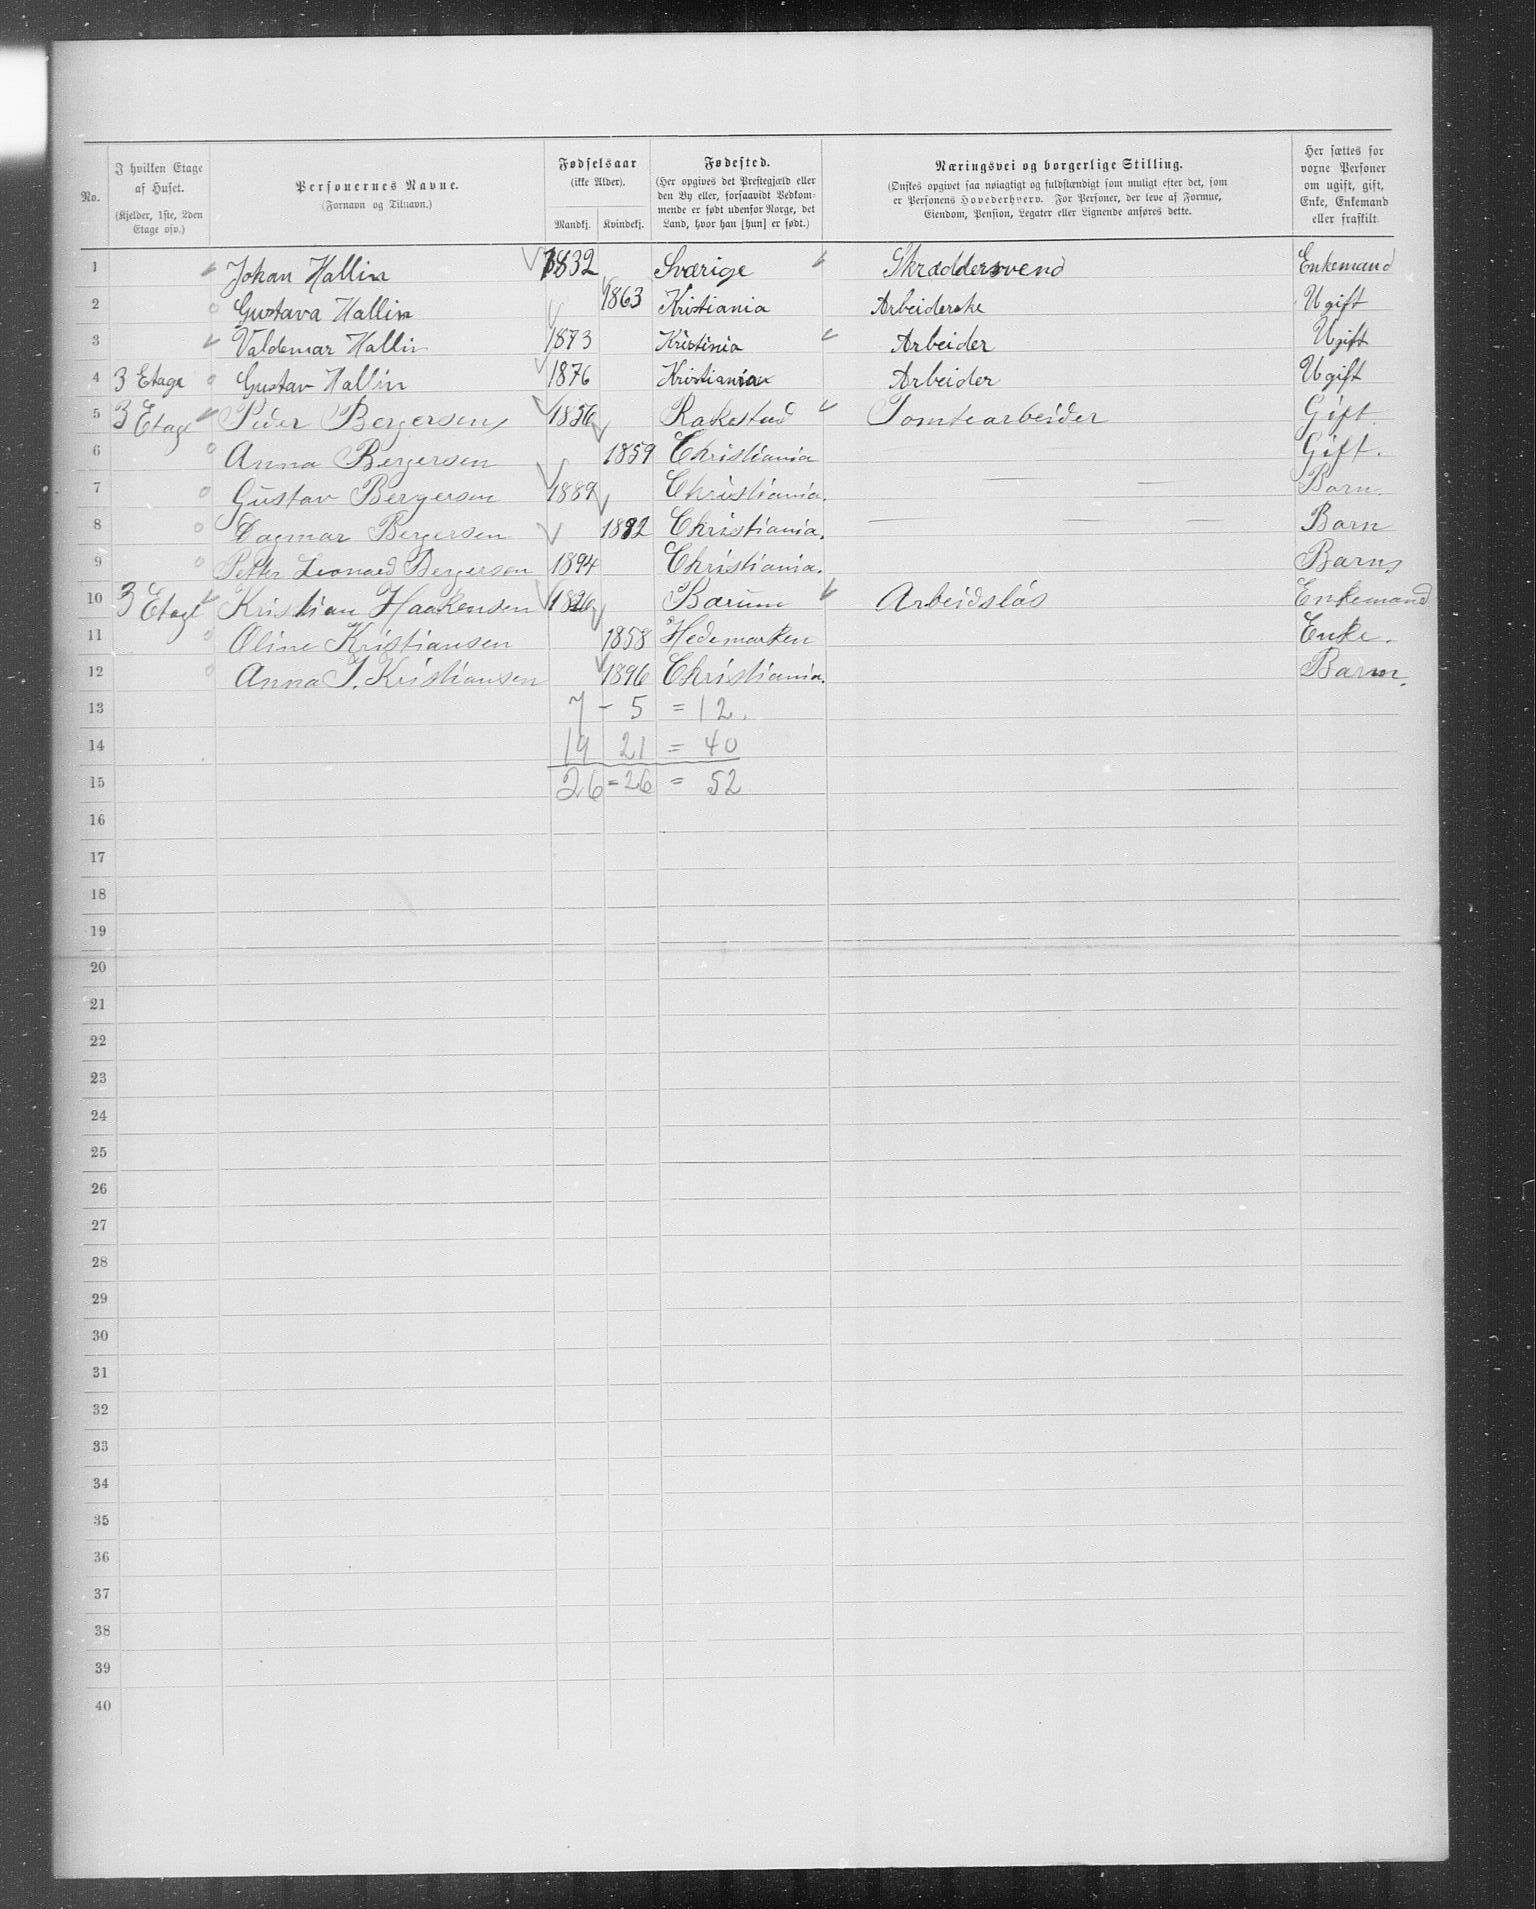 No.
I hvilken Etage af Huset.
(Kjelder, 1ste, 2den Etage osv.)
Personernes Navne.
(Fornavn og Tilnavn.)
Fødselsaar
(ikke Alder).
Mandkj. Kvindekj.
Fødested.
(Her opgives det Prestegjæld eller den By eller, forsaavidt Vedkommende er født udenfor Norge, det Land, hvor han [hun] er født.)
Næringsvei og borgerlige Stilling.
(Ønskes opgivet saa nøiagtigt og fuldstændigt som muligt efter det, som er Personens Hovederhverv. For Personer, der leve af Formue, Eiendom, Pension, Legater eller Lignende anføres dette.
Her sættes for vogne Personer om ugift, gift, Enke, Enkemand eller fraskilt.
1 Johan Hallin 1832 Sværige Skræddersvend Enkemand
2 Gustava Hallin 1863 Kristiania Arbeiderske Ugift
3 Valdemar Hallin 1873 Kristinia Arbeider Ugift
4 3 Etage Gustav Hallin 1876 Kristiania Arbeider Ugift
5 3 Etage Peder Bergersen 1856 Rakestad Tomtearbeider Gift.
6 Anna Bergersen 1859 Christiania Gift.
7 Gustav Bergersen 1889 Christiania. — — Barn.
8 Dagmar Bergersen 1892 Christiania. — — — Barn
9 Petter Leonard Bergersen 1894 Christiania. Barn
10 3 Etage Kristian Haakensen 1826 Barum Arbeidsløs Enkemand
11 Oline Kristiansen 1858 Hedemarken Enke.
12 Anna J. Kristiansen 1896 Christiania. Barn.
13 7 - 5 = 12.
14 19 21 = 40
15 26 = 26 = 52
16
17
18
19
20
21
22
23
24
25
26
27
28
29
30
31
32
33
34
35
36
37
38
39
40